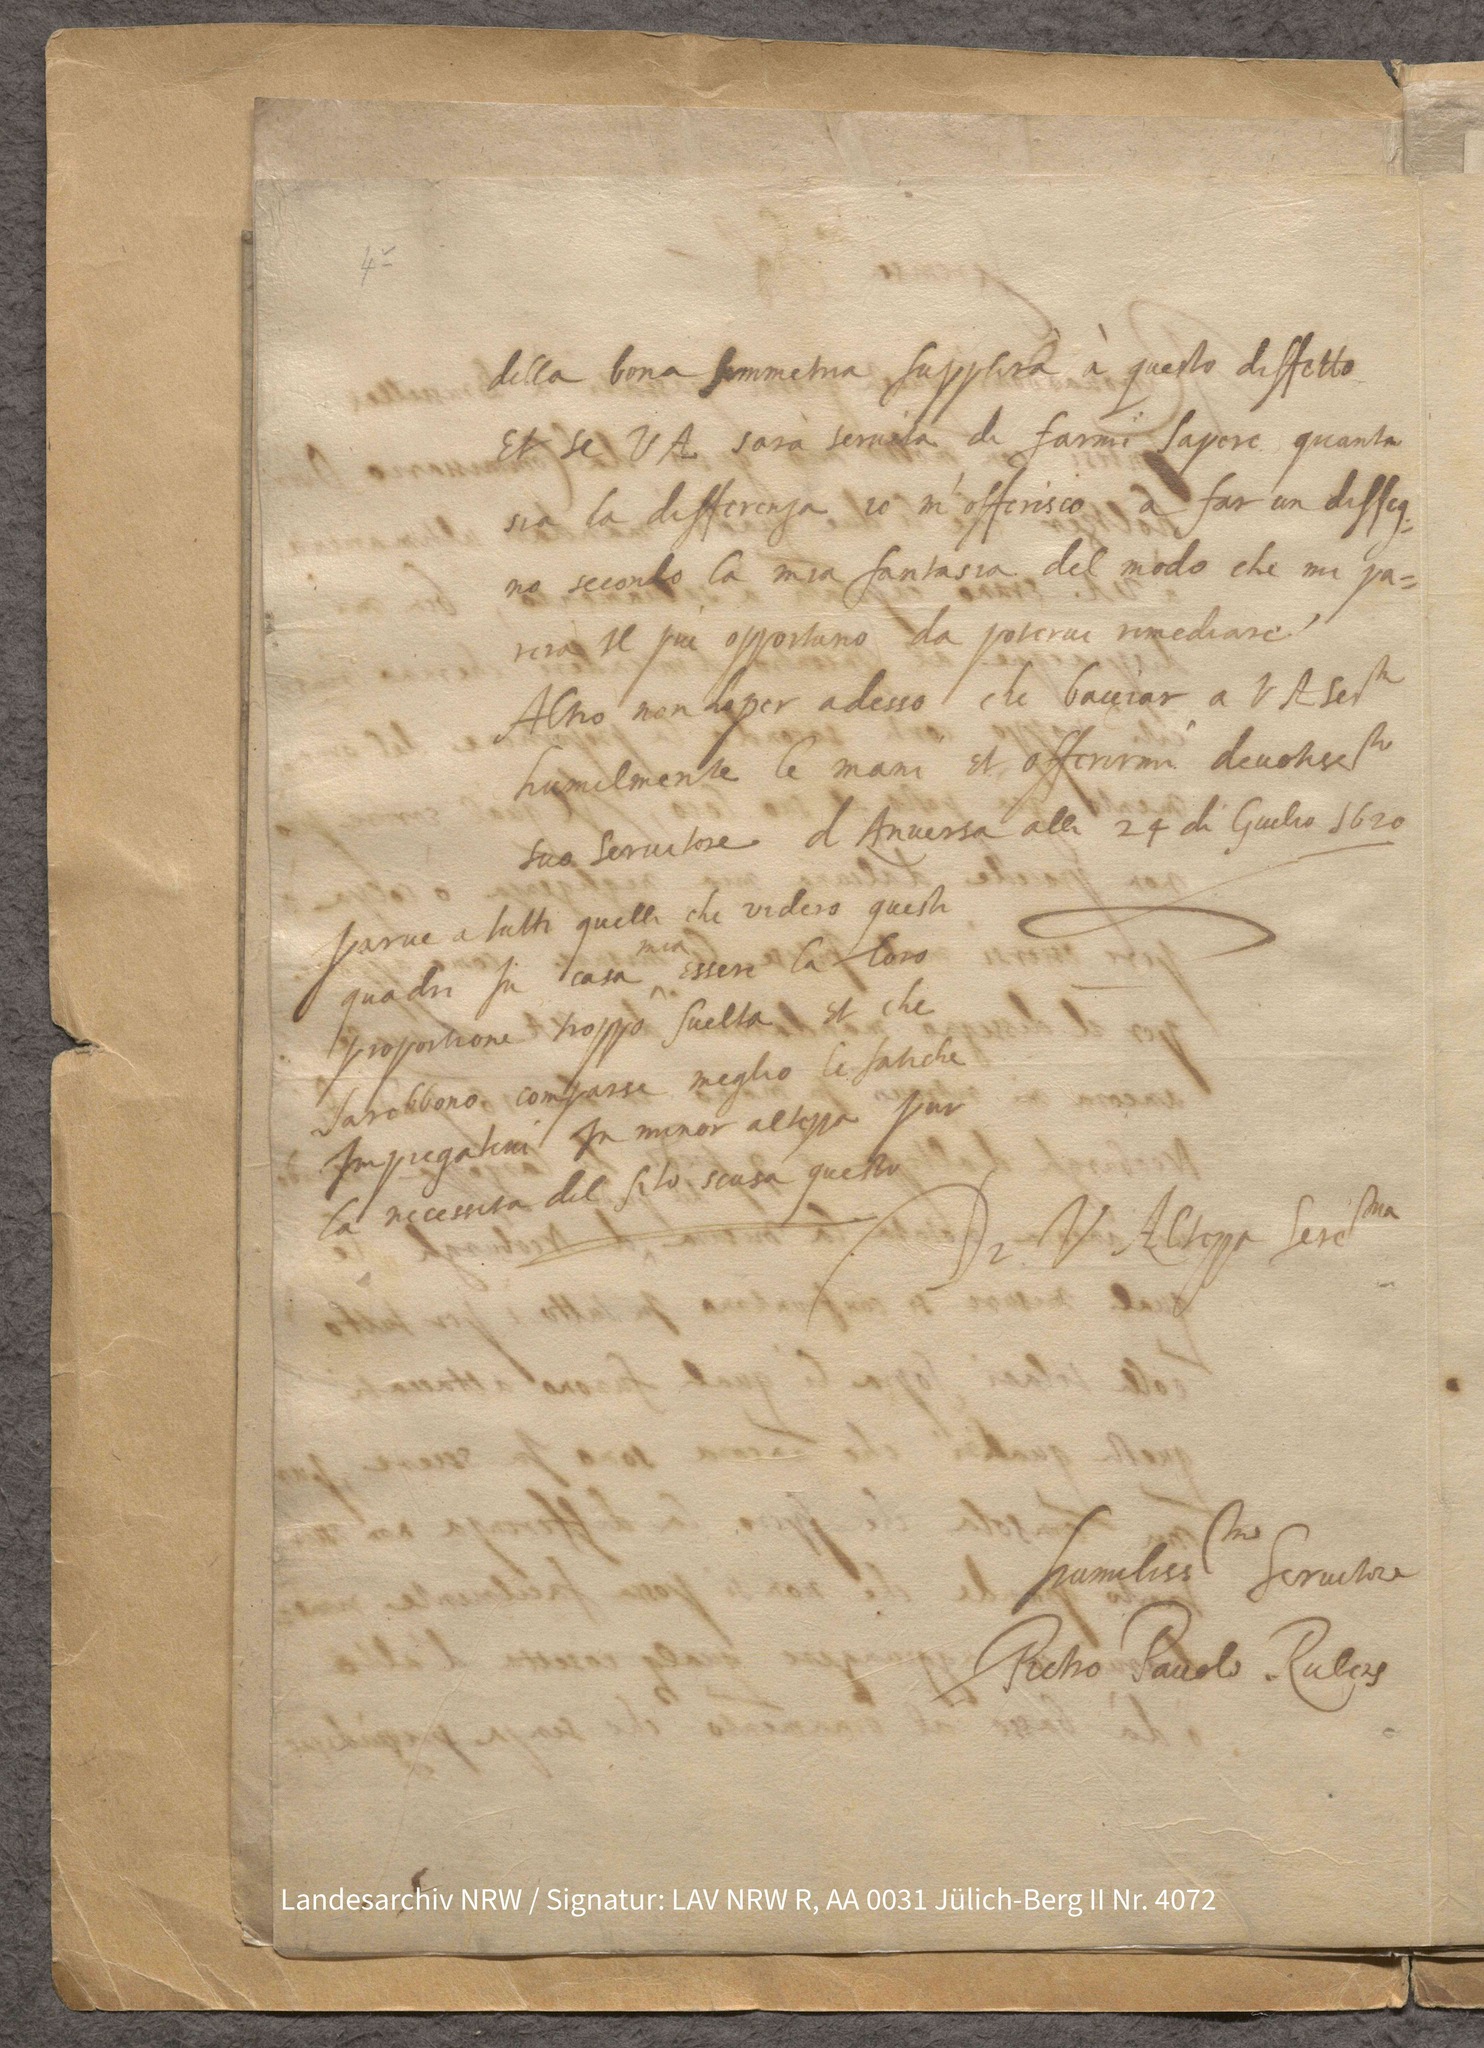 4v
della bona simmetria supplirà à questo diffetto
Et se VA sarà servita di farmi sapere quanta
sia la differenza io m'offerisco a far un disseg=
no secondo la mia fantasia del modo che mi pa=
rera il più opportuno da potervi rimediare
Altro non ho per adesso che bacciar a V A Serma
humilmente le mani et offerirmi devotissmo
suo servitore d Anversa alli 24 di Giulio 1620
parve a tutti quelli che videro questi
quadri in casa mia essere la loro
proportione troppo suelta et che
sarebbono comparse meglio le fatiche
Impiegatevi In minor altezza pur
la necessita del sito scusa questo
Di V Altezza Serema
humilissmo Servitore
Pietro Pauolo Rubens
Landesarchiv NRW / Signatur: LAV NRW R, AA 0031 Jülich-Berg II Nr. 4072